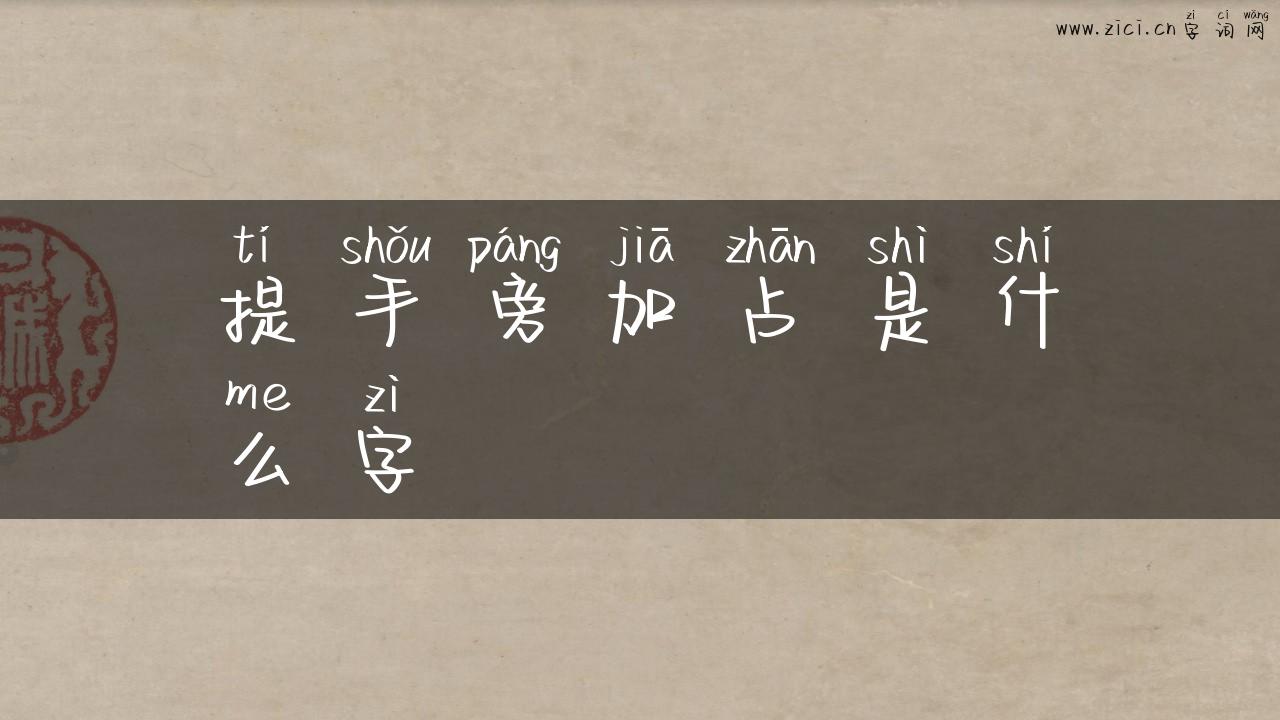 www.zici.cn 字词网
zì cí wǎng
tí shǒu páng jiā zhān shì shí
提手旁加占是什
me zì
么字